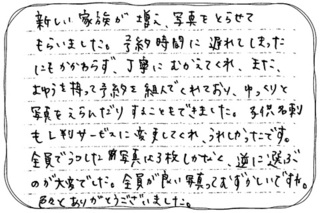 新しい家族が増え、写真をとらせて
もらいました。予約時間に遅れてしまった
にもかかわらず、丁寧にむかえてくれ、また、
よゆうを持って予約を組んでくれており、ゆっくりと
写真をえらんだりすることもできました。子供名刺
もL判サービスに変更してくれ、うれしかったです。
全員でうつした写真は3枚しかなく、逆に選ぶ
のが大変でした。全員が良い写真ってむずかしいですね。
色々とありがとうございました。